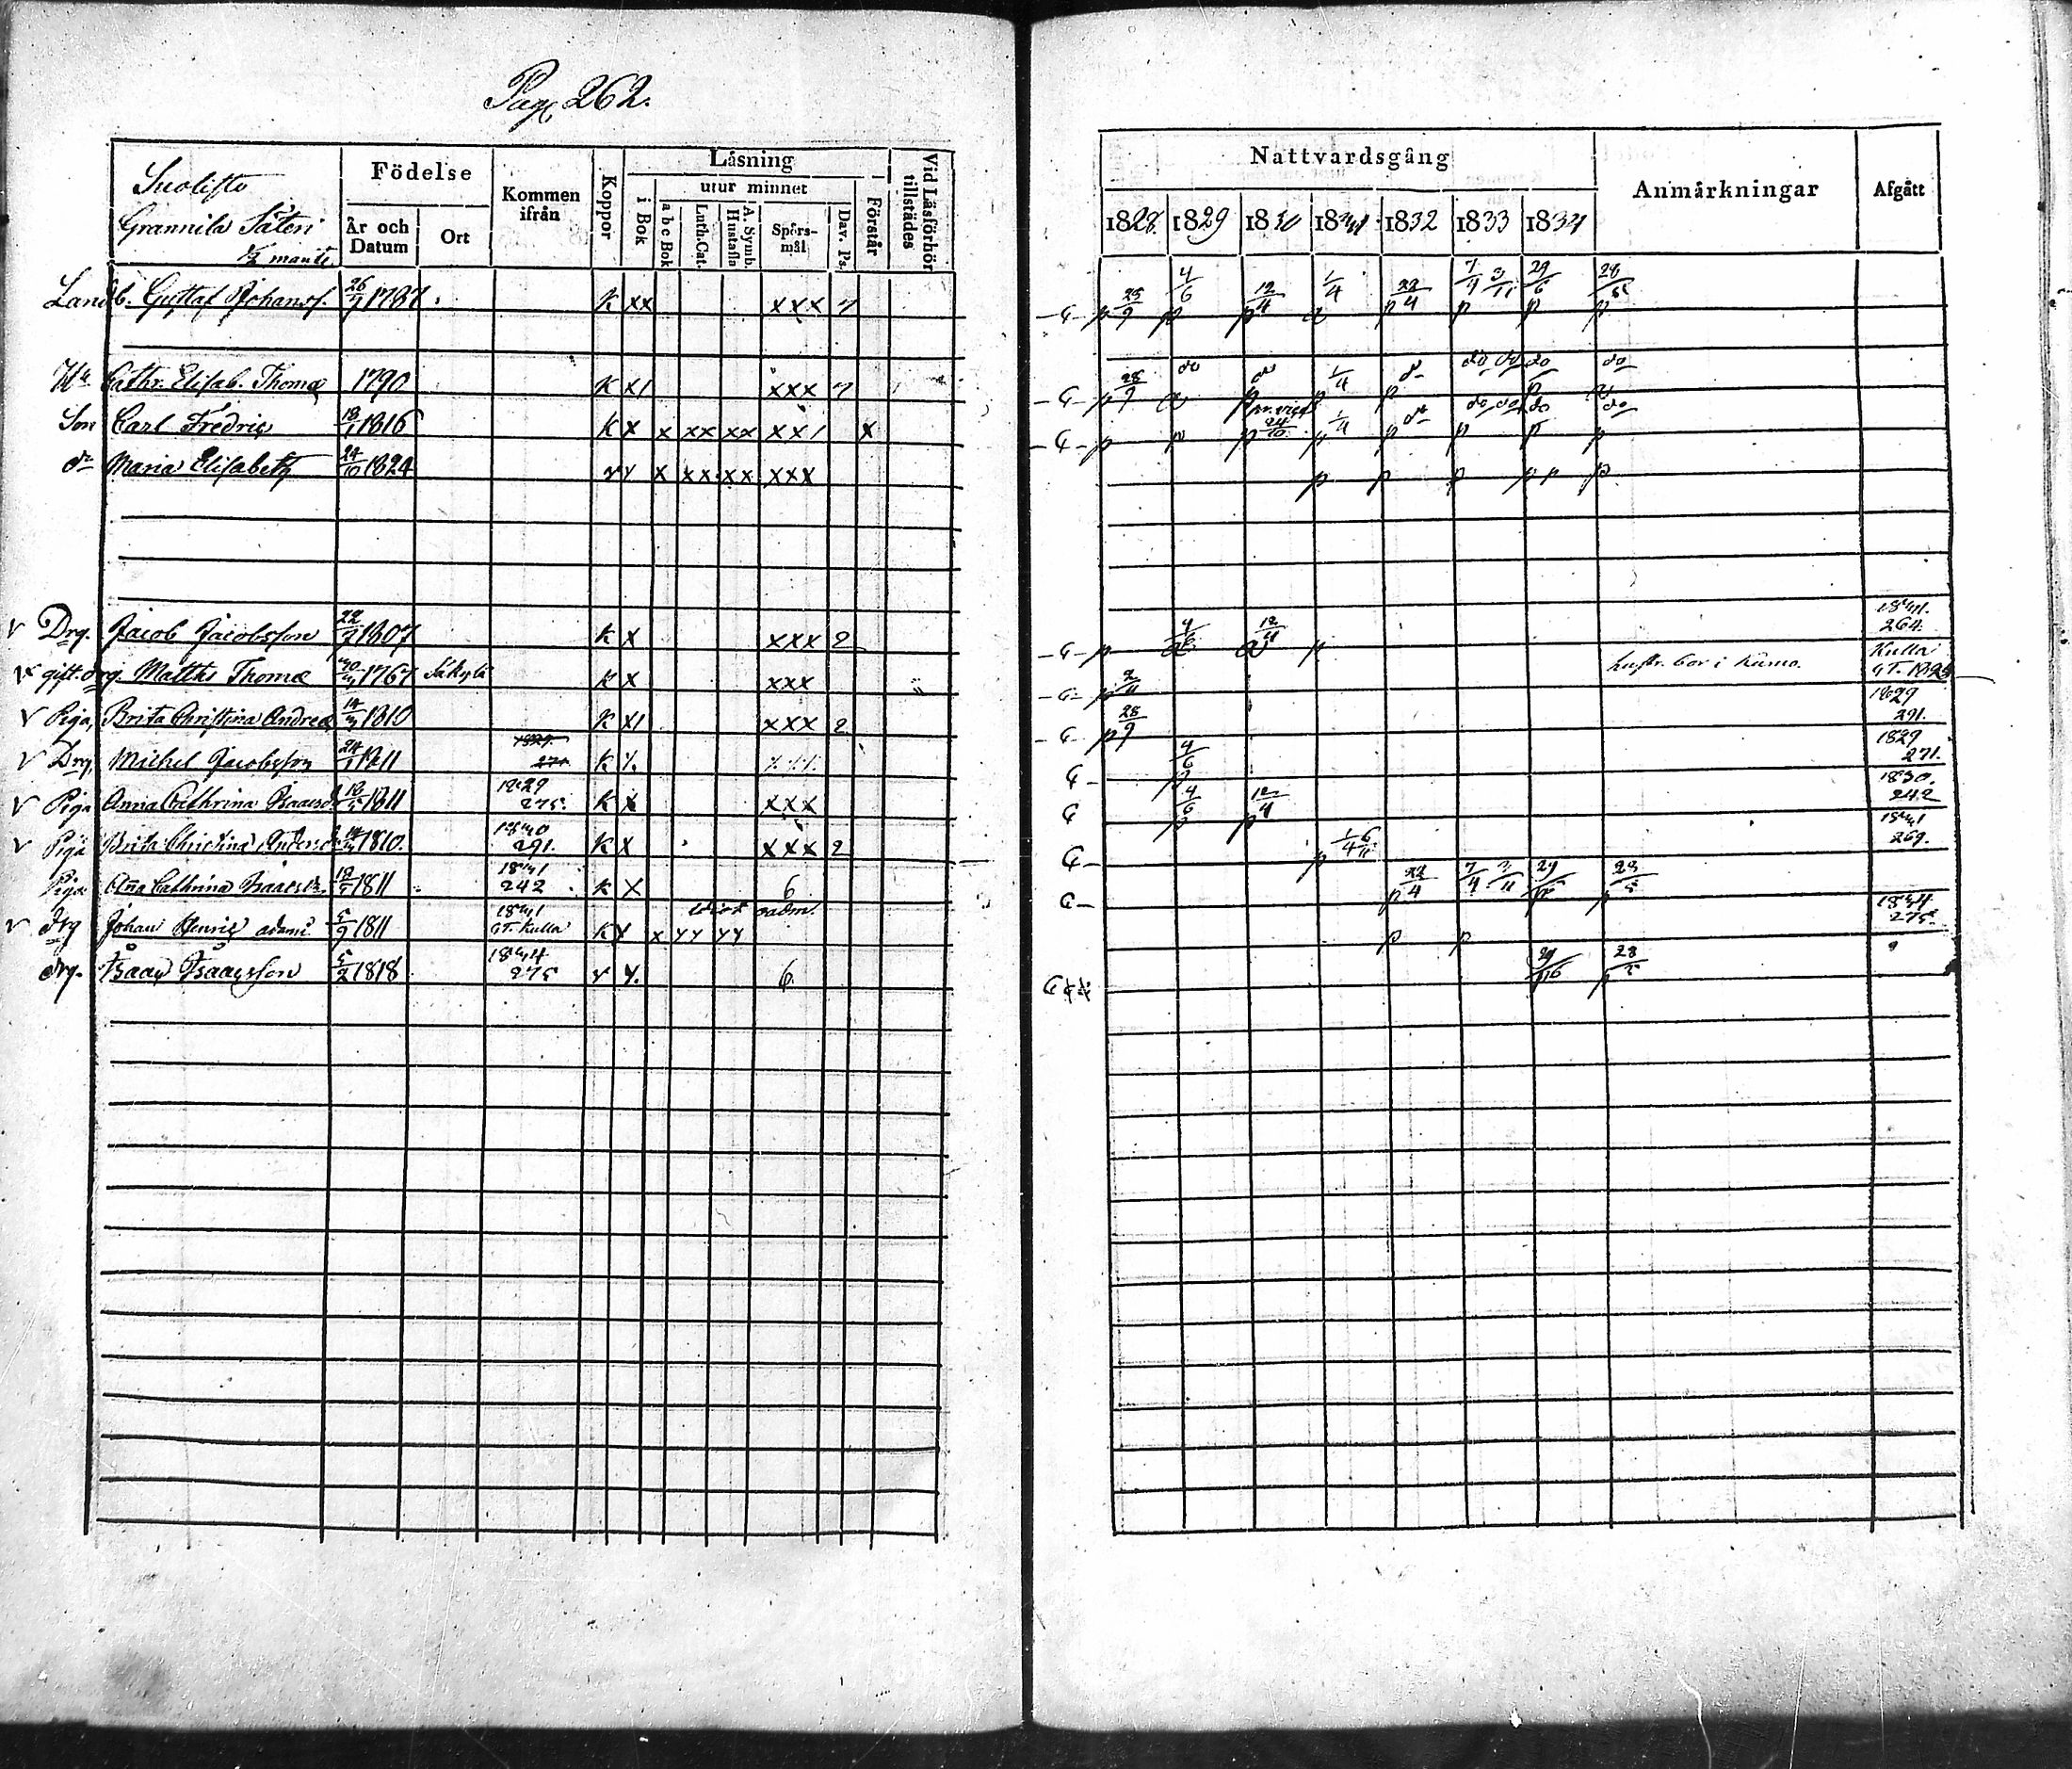 Pag. 262.
Suolisto
Grannila Säteri
½ mantl.
Födelse
År och Datum
Ort
Kommen ifrån
Koppor
Läsning
i Bok
utur minnet
a b c Bok
Luth. Cat.
A. Symb. Hustafla
Spörsmål
Dav. Ps.
Förstår
Vid Läsförhör tillstädes
Nattvardsgång
1828. 1829 1830 1831 1832 1833 1834
Anmärkningar
Afgått
Landb. Gustaf Johanss. 26/7 1787 K xx xxx 7 G p 28/9 4/6 p 12/4 p 1/4 a 22/4 p 7/4 3/11 p 29/6 p 28/5 p
Hu Cathr. Elisab. Thomæ 1790 K x1 xxx 7 G p 28/9 do a do p 1/4 p do p do do do p do
Son Carl Fredric 18/1 1816 K x x xx xx xx/ x G p p 24/10 p 1/4 p do p do do p do p do p
dr Maria Elisabeth 24/10 1824 v v x xx xx xxx p p p p p p
v Drg. Jacob Jacobsson 22/7 1807 K x xxx 2 G p 4/6 a 12/4 a p 1831. 264.
gift. drg. Matths Thomæ 1767 Säkylä K x xxx G p 2/11 hustr. bor i Kumo. Kulla
v Piga Brita Christina Andreæ 14/3 1810 K x1 xxx 2 G p 28/9 1829 291.
v Drg. Michel Jacobsson 24/1 1811 1829. 271 K G 4/6 p 1829 271.
v Piga Anna Cathrina Isaacsd. 18/5 1811 1829 275. K x xxx G 4/6 p 12/4 p 1830. 242
v Piga Brita Christina Andersd. 14/3 1810. 1830 291. K x xxx 2 G 1/4 6/11 p 1831 269.
Piga Aña Cathrina Isaacsdr. 18/5 1811 1831 242 K x 6 G 22/4 p 7/4 3/11 29/6 p 28/5 p
v Drg Johan Henric Adami 5/9 1811 1831 GT. Kulla K x yy yy p p 1834 275
drg. Isaac Isaacsson 5/2 1818 1834 275 v v. 6. G 29/6 p 28/5 p